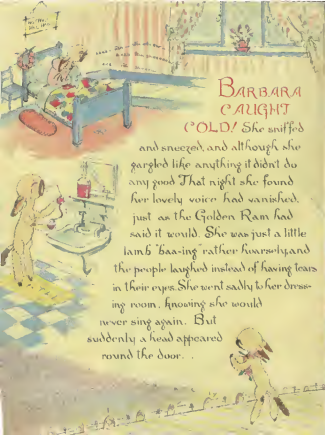 BARBARA
CAUGHT
COLD! She sniffed
and sneezed, and although she
gargled like anything it didn't do
any good That night she found
her lovely voice had vanished,
just as the Golden Ram had
said it would. She was just a little
lamb "baa-ing" rather hoarsely, and
the people laughed instead of having tears
in their eyes. She went sadly to her dress-
ing room, knowing she would
never sing again. But
suddenly a head appeared
round the door. . .